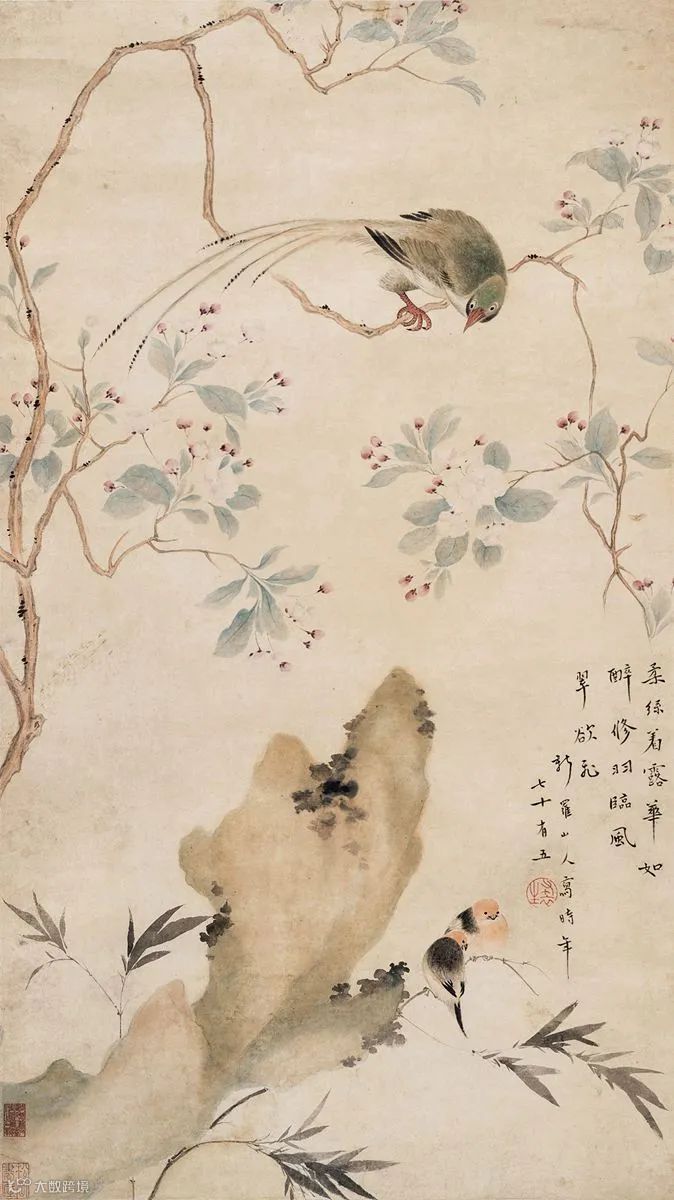 柔絲着露華如
醉修羽臨風
翠欲飛
新羅山人寫時年
七十有五
大数跨境